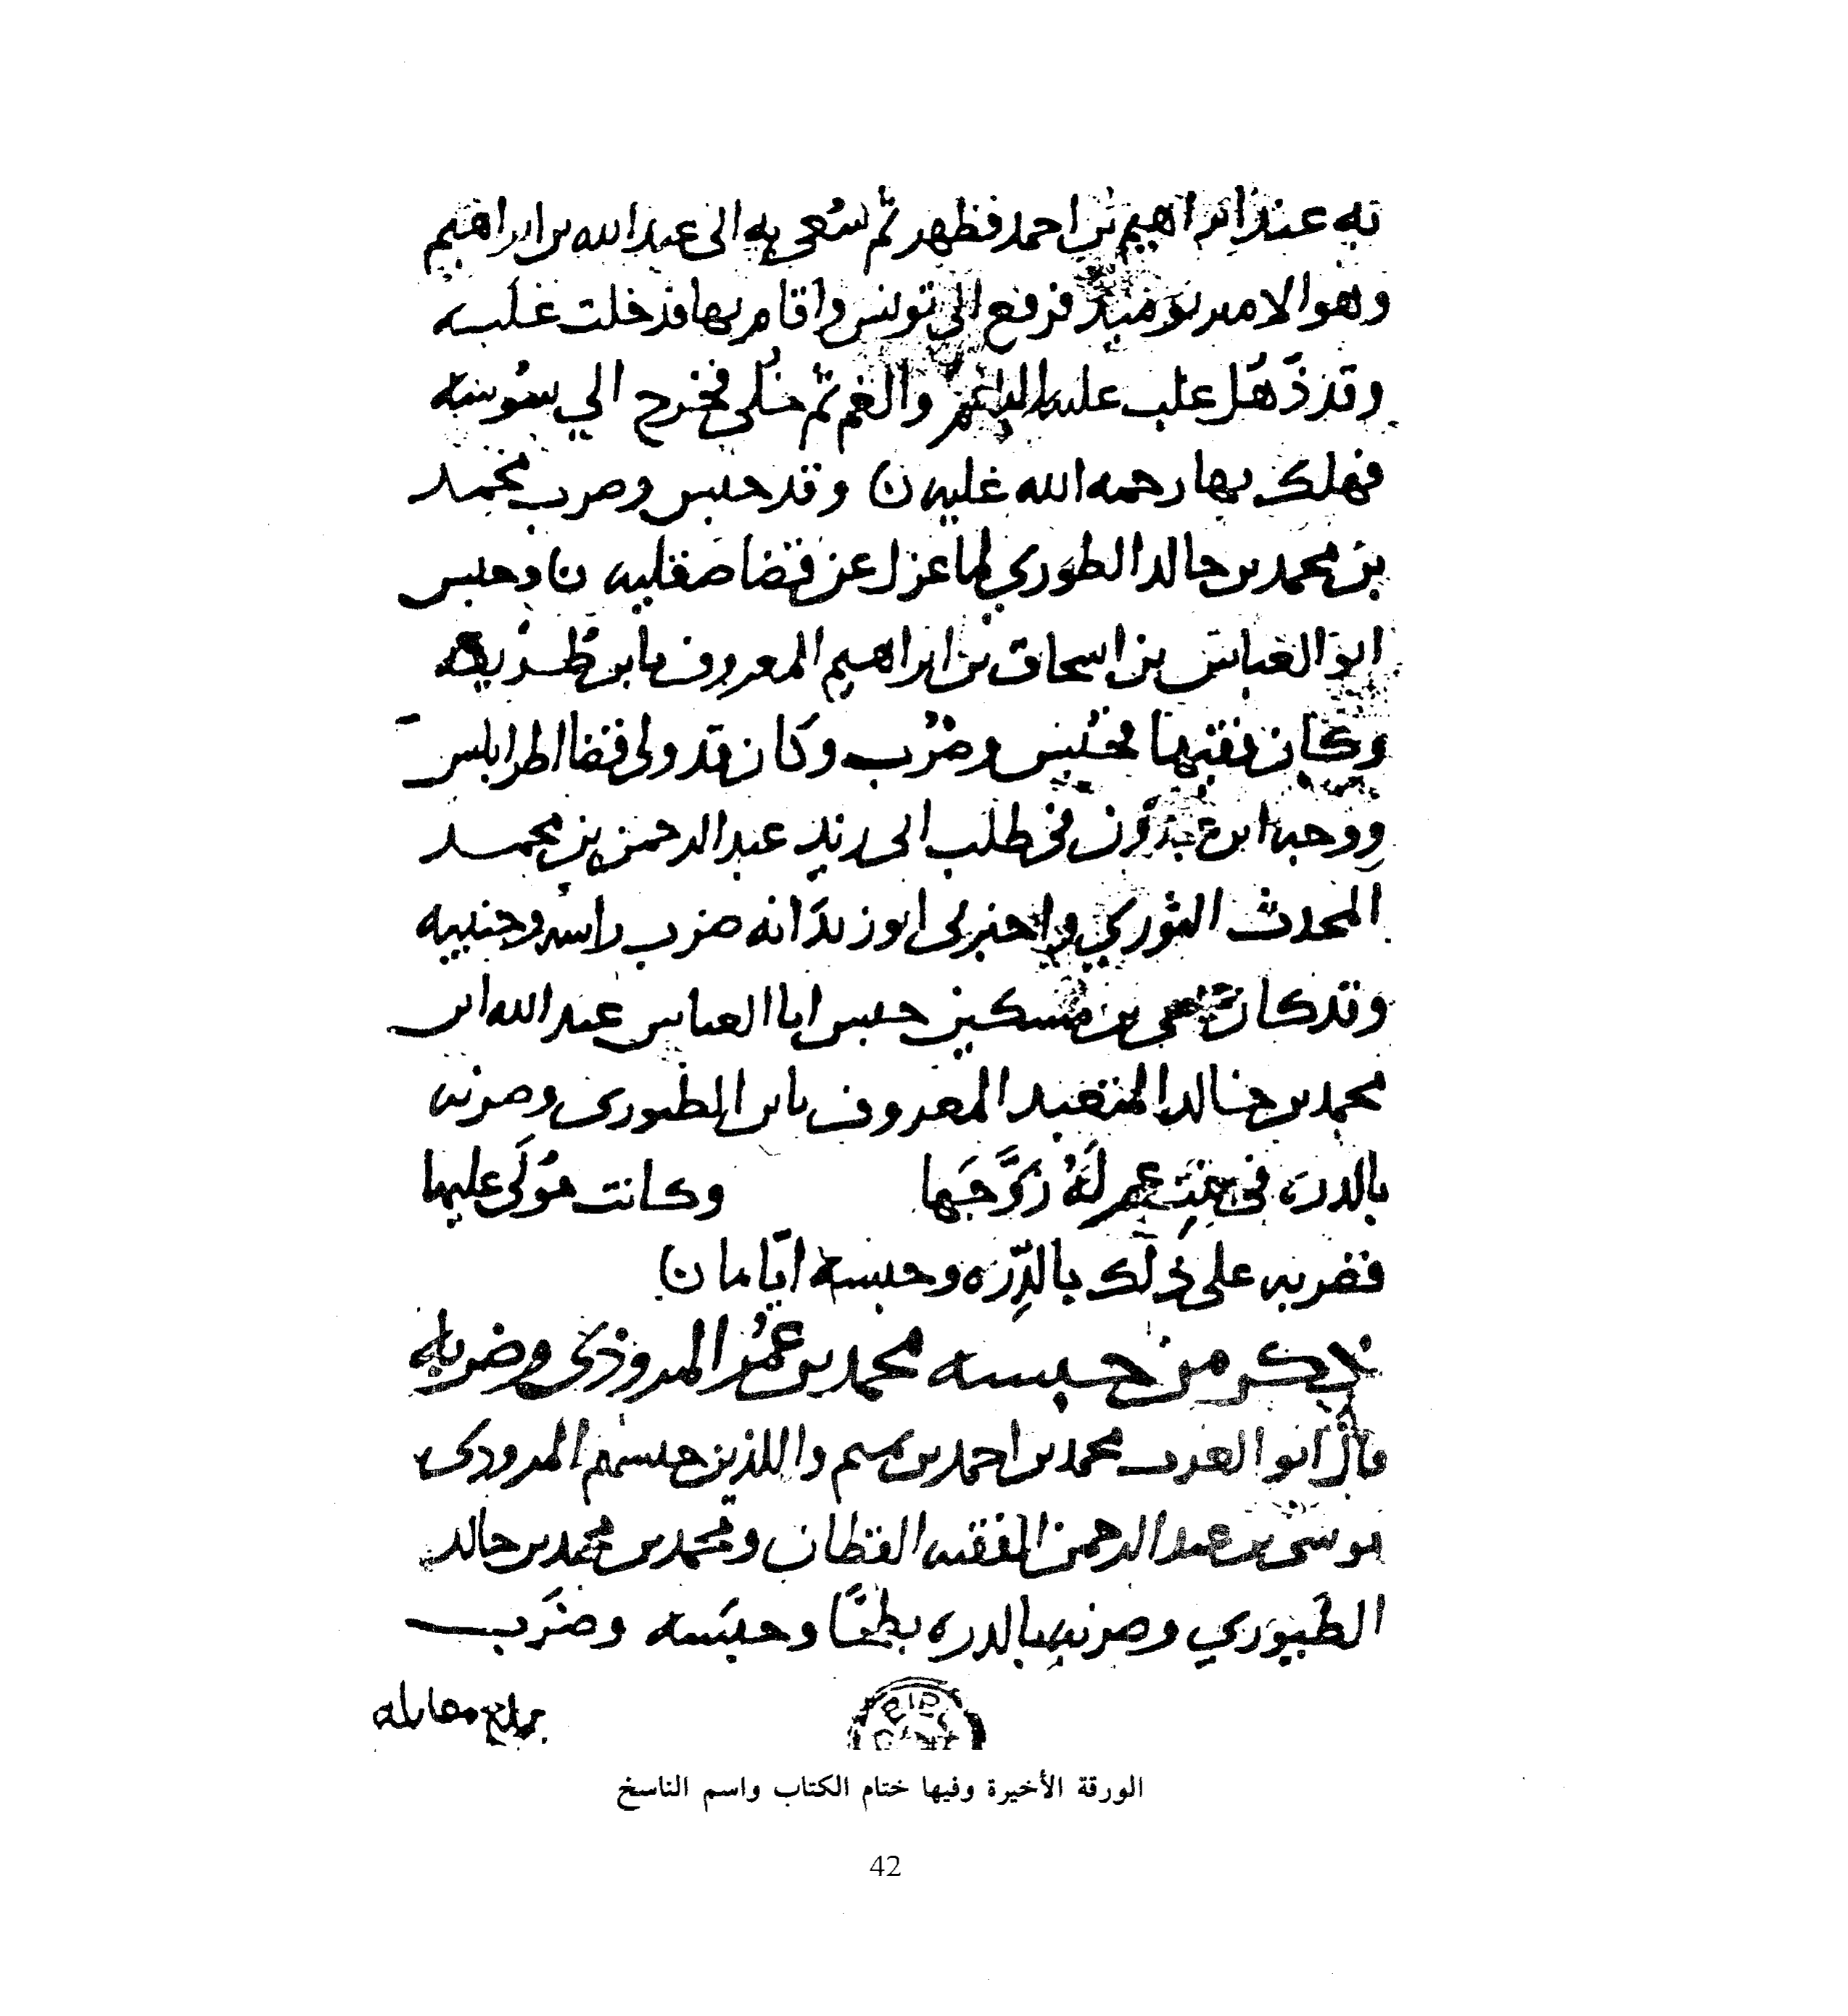 به عند ابراهيم بن احمد فظهر ثم سُعى به الى عبد الله بن ابراهيم
وهو الامير يومئذ فرفع الى تونس واقام بها فدخلت عليه
وقد ذَهُل عليه والغم ثم خُلى فخرج الي سُوسة
فهلك بها رحمه الله عليه ن وقد حبس وضرب محمد
بن محمد بن خالد الطوري لما عزل عن قضا صقليه ن وحبس
ابو العباس بن اسحاق بن ابراهيم المعروف بابن
وكان فقيها فحُبس وضُرب وكان قد ولى قضا اطرابلس
ووجه ابن عبدون في طلب ابى زيد عبد الرحمن بن محمد
المحدث الثوري واخبرنى ابو زيد انه ضرب راسه وجنبيه
وقد كان بن مسكين حبس ابا العباس عبد الله ابن
محمد بن خالد المتعبد المعروف بابن الطبورى وضربه
بالدره فى بنت عم لَهُ زَوَّجَها وكانت مُوَلَى عليها
فضربه على ذلك بالدِّرَه وحبسه ايّاما ن
ذكر من حبسه محمد بن عمر المروذي وضربه
قال ابو العرب محمد بن احمد بن تميم واللذين حبسهم المرودى
موسى بن عبد الرحمن الفقيه القطان ومحمد بن محمد بن خالد
الطَبوري وضربه بالدره بطحًا وحبَسه وضَرب
بلغ مقابله
الورقة الأخيرة وفيها ختام الكتاب واسم الناسخ
42